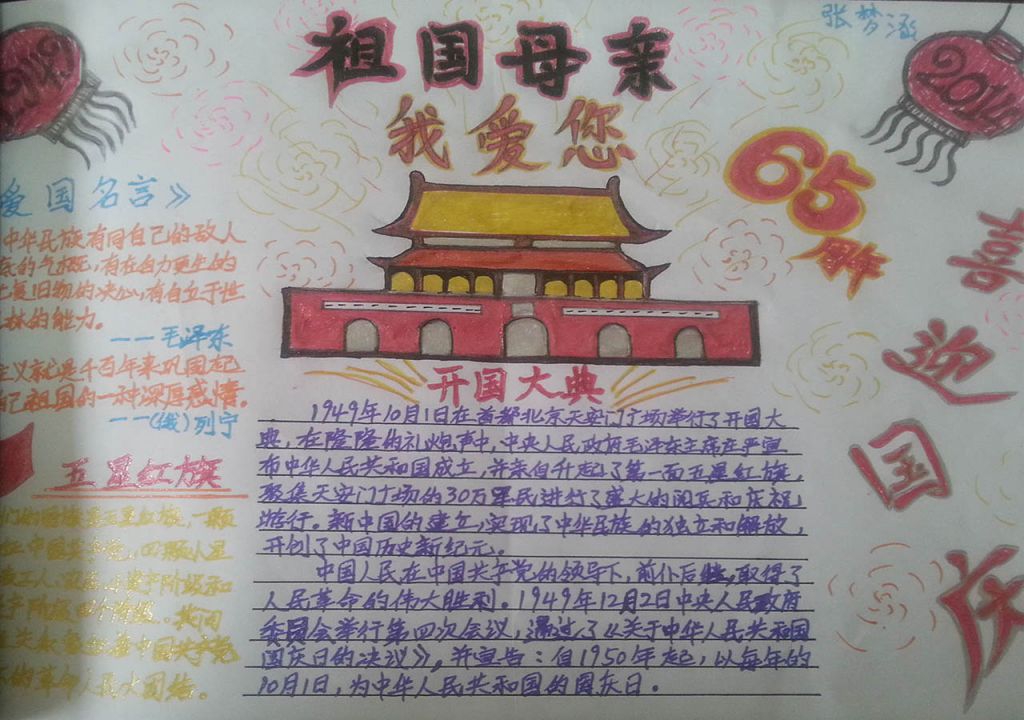 张梦涵
祖国母亲
2014
我爱您
65
周年
喜迎国庆
爱国名言》
中华民族有同自己的敌人
的气概,有在自力更生的
复旧物的决心,有自立于世
林的能力。
——毛泽东
主义就是千百年来巩固起
己祖国的一种深厚感情。
——(俄)列宁
五星红旗
开国大典
1949年10月1日在首都北京天安门广场举行了开国大
典,在隆隆的礼炮声中,中央人民政府毛泽东主席庄严宣
布中华人民共和国成立,并亲自升起了第一面五星红旗,
聚集天安门广场的30万军民进行了盛大的阅兵和庆祝
游行。新中国的建立,实现了中华民族的独立和解放,
开创了中国历史新纪元。
中国人民在中国共产党的领导下,前仆后继,取得了
人民革命的伟大胜利。1949年12月2日中央人民政府
委员会举行第四次会议,通过了《关于中华人民共和国
国庆日的决议》,并宣告:自1950年起,以每年的
10月1日,为中华人民共和国的国庆日。
五星红旗,一颗
四颗小星
工人
阶级和
中国共产党
的革命人民大团结。